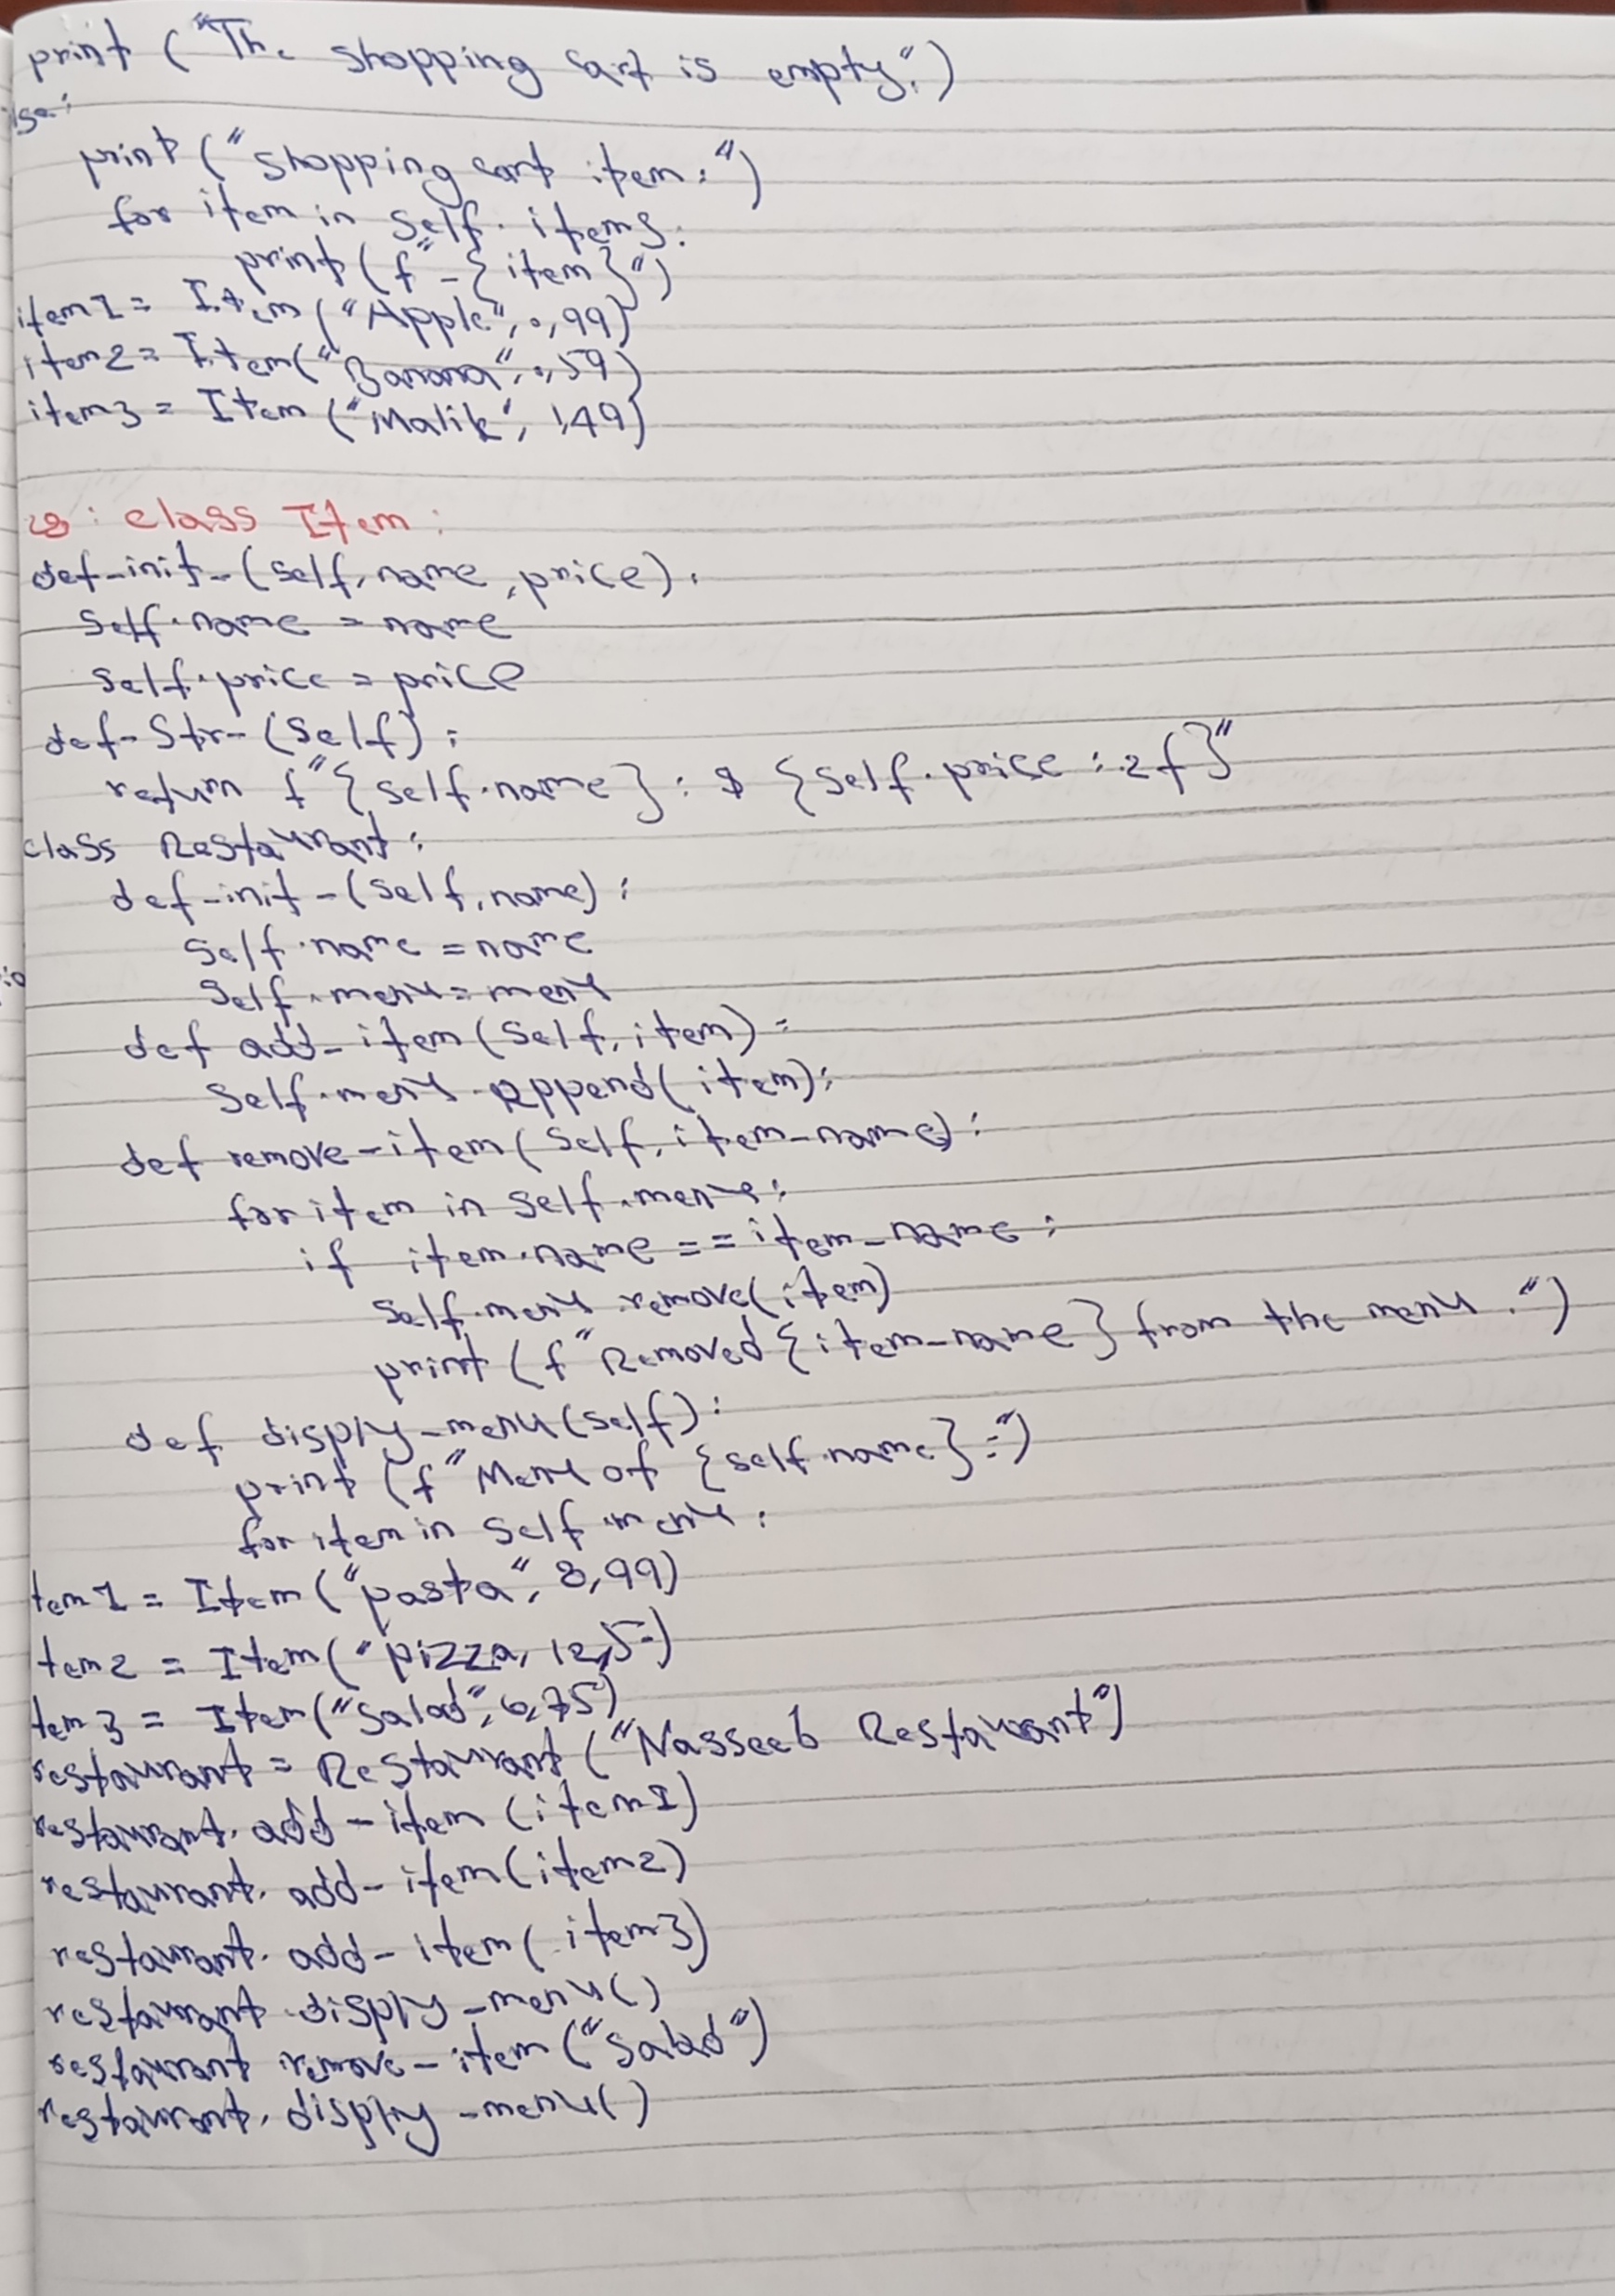 print ("The shopping cart is empty.")
lse:
print ("shopping cart item:")
for item in self.items:
print(f"-{item}")
item1 = Item ("Apple", 0,99)
item2 = Item("Banana", 0,59)
item3 = Item ("Malik", 1,49)
: class Item:
def-init-(self, name, price):
self.name = name
self.price = price
def-Str-(self):
return f"{self.name}: $ {self.price :.2f}"
class Restaurant:
def-init-(self, name):
self.name = name
self.menu = menu
def add-item(self, item):
self.menu.append(item):
def remove-item(self, item-name):
for item in self.menu:
if item.name == item_name:
self.menu.remove(item)
print (f"Removed {item-name} from the menu.")
def disply-menu(self):
print (f"Menu of {self.name}:")
for item in self.menu:
tem1 = Item ("pasta", 8,99)
tem2 = Item ("pizza, 12,50)
tem3 = Item("salad", 6,75)
restaurant = Restaurant ("Nasseeb Restaurant")
restaurant.add-item (item1)
restaurant.add-item(item2)
restaurant.add-item(item3)
restaurant.disply-menu()
restaurant remove-item ("salad")
restaurant.disply-menu()